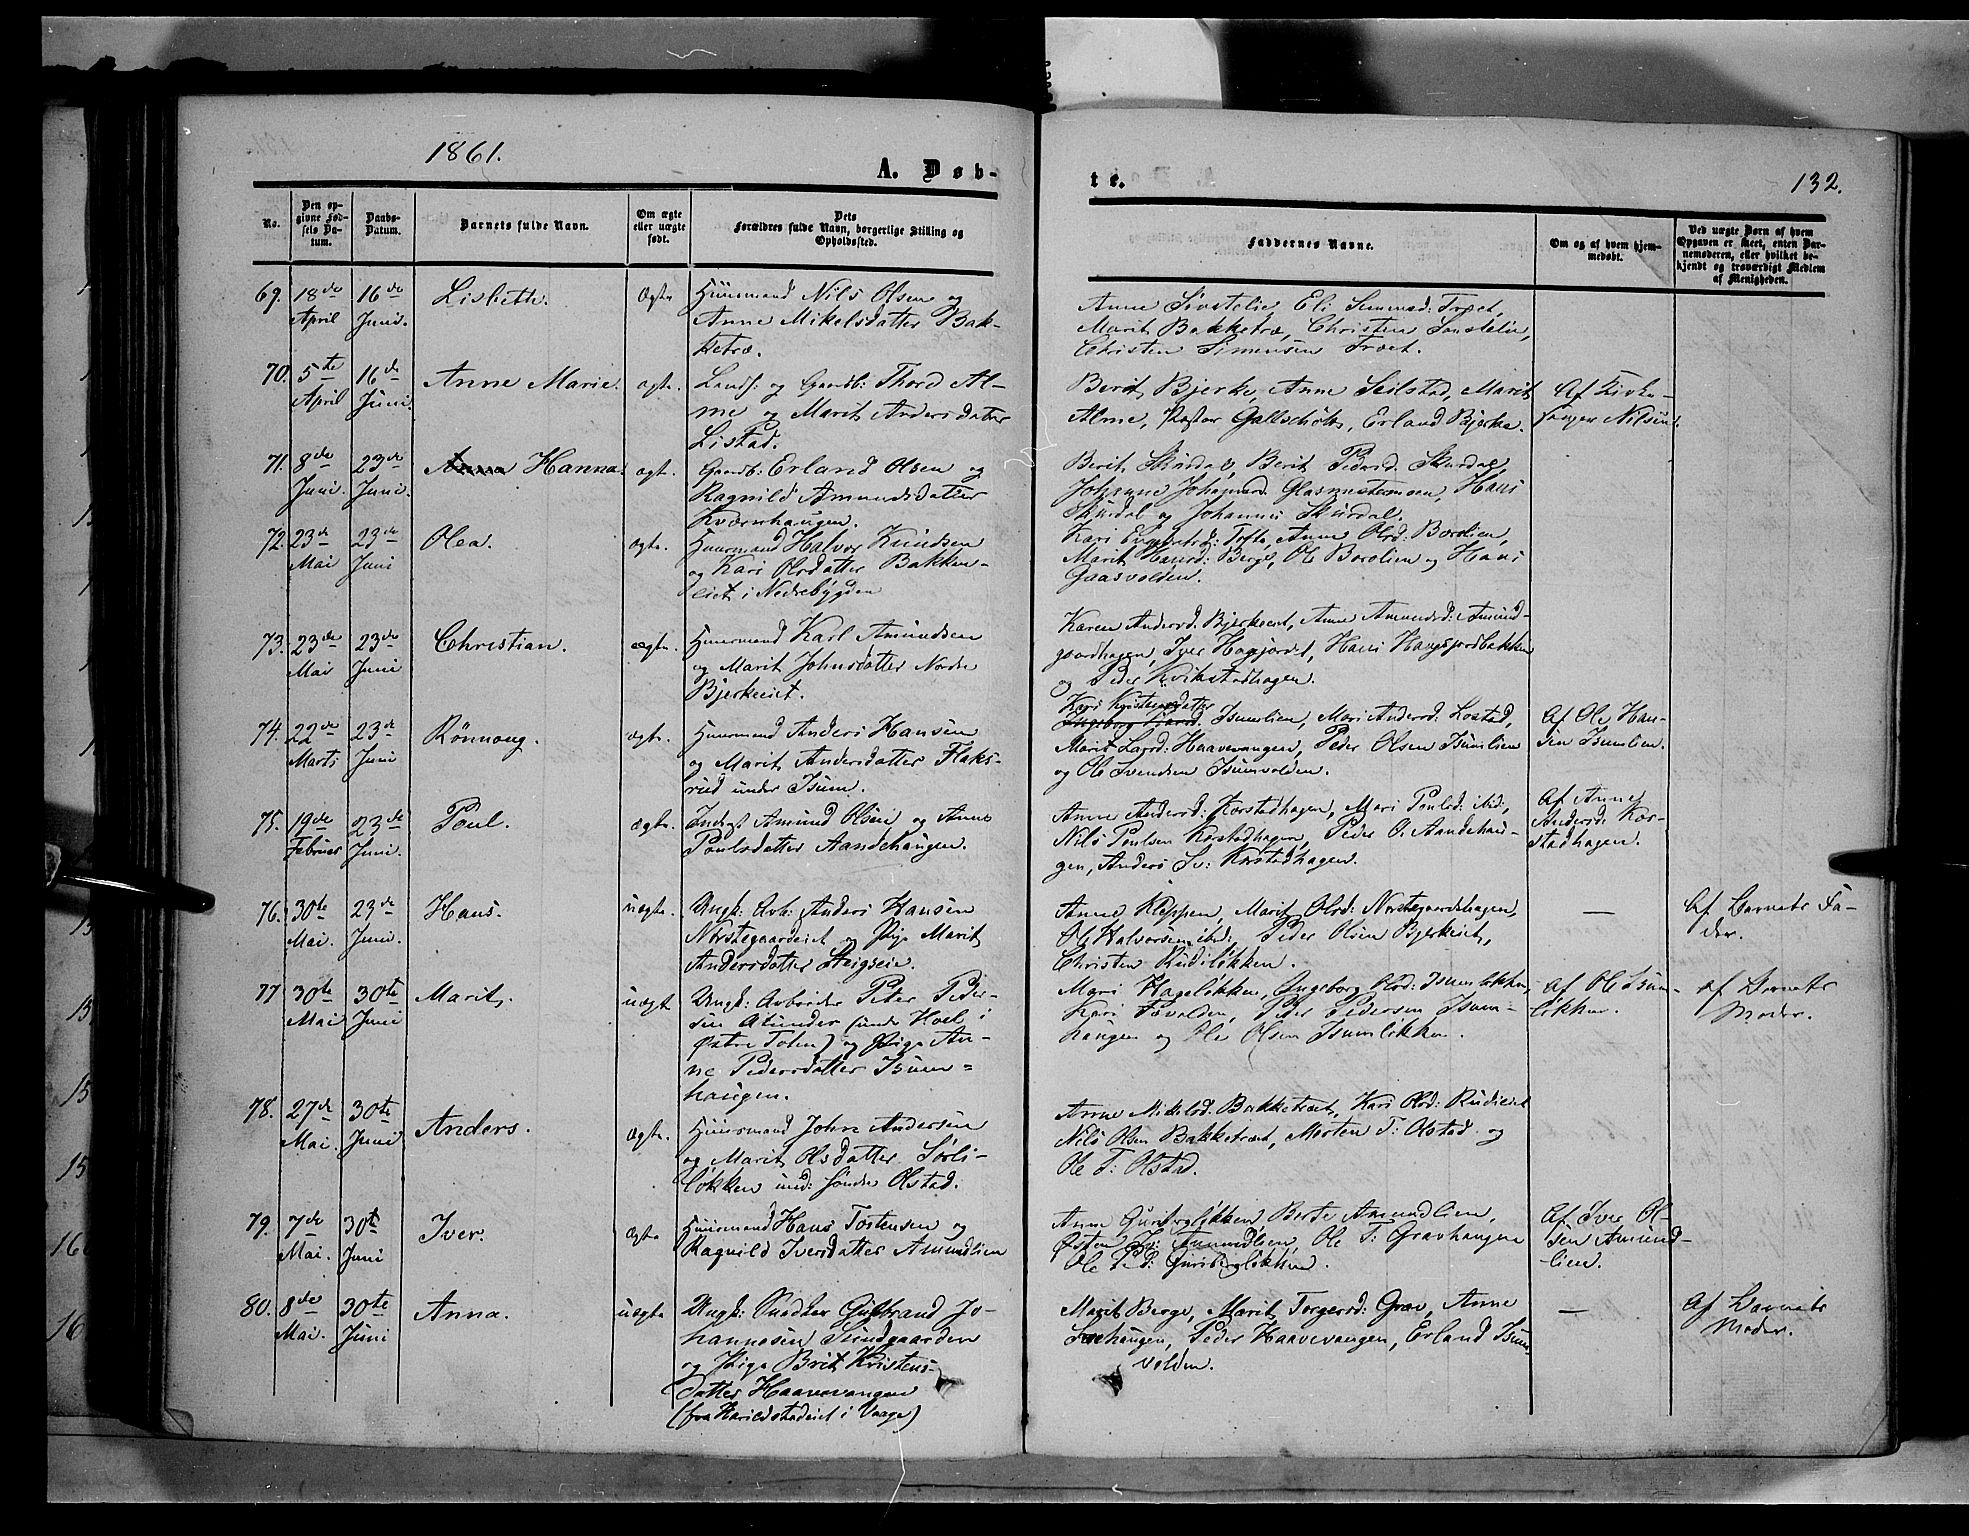 1861.
A. Døb-
te.
132.
No.
Den op-
givne Fød-
sels Da-
tum.
Daabs-
Datum.
Barnets fulde Navn.
Om ægte
eller uægte
født.
Dets
Forældres fulde Navn, borgerlige Stilling og
Opholdssted.
Faddernes Navne.
Om og af hvem hjem-
medøbt.
Ved uægte Børn af hvem
Opgaven er skeet, enten Bar-
nemoderen, eller hvilket be-
kjendt og troværdigt Medlem
af Menigheden.
69. 18de April
16de Juni.
Lisbeth.
Ægte
Huusmand Nils Olsen og
Anne Mikelsdatter Bak-
ketræ.
Anne Eli Træet,
Marit Bakketræ, Christen
Christen Simensen Træet.
70. 5te April
16de Juni.
Anne Marie.
ægte.
Landh: og Gaardb: Thord Al-
me og Marit Andersdatter
Listad.
Berit Bjerke, Anne Seilstad, Marit
Alme, Pastor Erland Bjerke.
Af Kirke-
sanger Nilsen.
71. 8de Juni.
23de Juni.
Anna Hanna.
ægt.
Gaardb: Erland Olsen og
Ragnild Amundsdatter
Kværnhaugen.
Berit Skurdal, Berit Pedersd. Skurdal,
Johanne Johannesd. Hans
Skurdal og Johannes Skurdal.
72. 23de Mai
23de Juni
Olea.
ægte.
Huusmand Halvor Knudsen
og Kari Olsdatter Bakken-
eiet i Nedrebygden
Kari Anne Olsd: Borolien,
Marit Hansd: Berge, Ole Borolien og Hans
Gaasvolden.
73. 23de Mai
23de Juni
Christian.
ægte.
Huusmand Karl Amundsen
og Marit Johnsdatter Nordre
Bjerkeeiet.
Karen Andersd. Bjerkeeiet, Anne Amundsd: Amund-
gaardhagen, Iver Hans
og Peder Kvikstadhagen.
74. 22de Marts
23de Juni
Rønnaug.
ægte.
Huusmand Anders Hansen
og Marit Andersdatter Flaks-
rud under Isum.
Kari Kristensdatter
Isumlien, Mari Andersd. Lostad,
Marit Larsd: Haavevangen, Peder Olsen Isumlien
og Ole Svendsen Isumvolden.
Af Ole Han-
sen Isumlien.
75. 19de Februar
23de Juni.
Poul.
ægte.
Inderst Amund Olsen og Anne
Poulsdatter Aandehaugen.
Anne Andersd: Korstadhagen, Mari Poulsd: ibid:,
Nils Poulsen Korstadhagen, Peder O. Aandehau-
gen, Anders Korstadhagen.
Af Anne
Andersd: Kor-
stadhagen.
76. 30te Mai.
23de Juni.
Hans.
uægte.
Ungk: Arb: Anders Hansen
Nørstegaardeiet og Pige Marit
Andersdatter Steigseie.
Anne Kleppen, Marit Olsd: Nørstegaardshagen,
Ole Halvorsen ibid:, Peder Olsen Bjerkeiet,
Christen Rudiløkken.
—
Af Barnets Fa-
der.
77 30te Mai
30te Juni
Marit.
uægt
Ungk: Arbeider Peter Peder-
sen Alunder (under Hoel i
Østre Toten) og Pige An-
ne Pedersdatter Isum-
haugen.
Mari Hageløkken, Ingeborg Olsd: Isumløkken,
Kari Peder Pedersen Isum-
haugen og Ole Olsen Isumløkken.
af Ole Isum-
løkken.
af Barnets
Moder.
78. 27de Mai.
30te Juni
Anders.
Ægte.
Huusmand John Andersen
og Marit Olsdatter Sørli-
løkken und: søndre Olstad.
Anne Mikelsd. Bakketræet, Kari Olsd: Rudieiet
Nils Olsen Bakketræet, Morten T: Olstad og
Ole T: Olstad.
79. 7de Mai.
30te Juni
Iver.
ægte
Huusmand Hans Tostensen og
Ragnild Iversdatter Amundlien
Anne Guribyløkken, Berte Amundlien,
Østen Iv: Amundlien, Ole T: Gravhaugen
Ole Ped: Guribyløkken.
Af Iver Ol-
sen Amund-
lien.
80. 8de Mai.
30te Juni
Anna.
uægte
Ungk: Snedker Guttrand Jo-
hannesen Sundgaarden
og Pige Brit Kristens-
datter Haavevangen
(fra i Vaage)
Marit Berge, Marit Torgersd: Grav, Anne
Peder Haavevangen, Erland Isum-
volden.
—
Af Barnets
Moder.